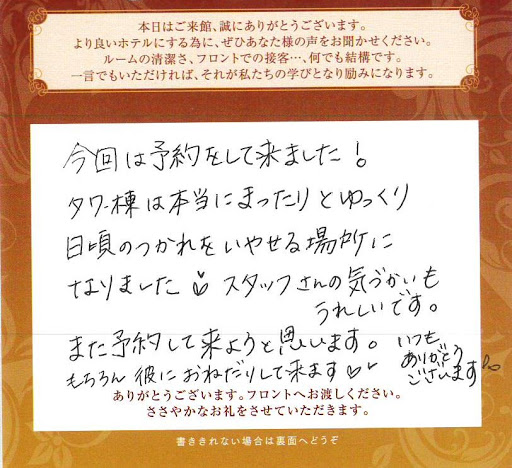 本日はご来館、誠にありがとうございます。
より良いホテルにする為に、ぜひあなた様の声をお聞かせください。
ルームの清潔さ、フロントでの接客…、何でも結構です。
一言でもいただければ、それが私たちの学びとなり励みになります。
今回は予約をして来ました!
タワー棟は本当にまったりとゆっくり
日頃のつかれをいやせる場所に
なりました♡ スタッフさんの気づかいも
うれしいです。
また予約して来ようと思います。
もちろん彼におねだりして来ます♡
いつも
ありがとう
ございます
ありがとうございます。フロントへお渡しください。
ささやかなお礼をさせていただきます。
書ききれない場合は裏面へどうぞ